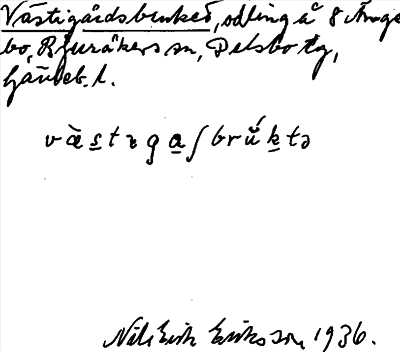 Västigårdsbruket, odling å 8 Ånge
bo, Bjuråkers sn, Delsbo tg,
Gävleb. l.
væstıgaʃbrúktə
Nils Erik Eriksson, 1936.